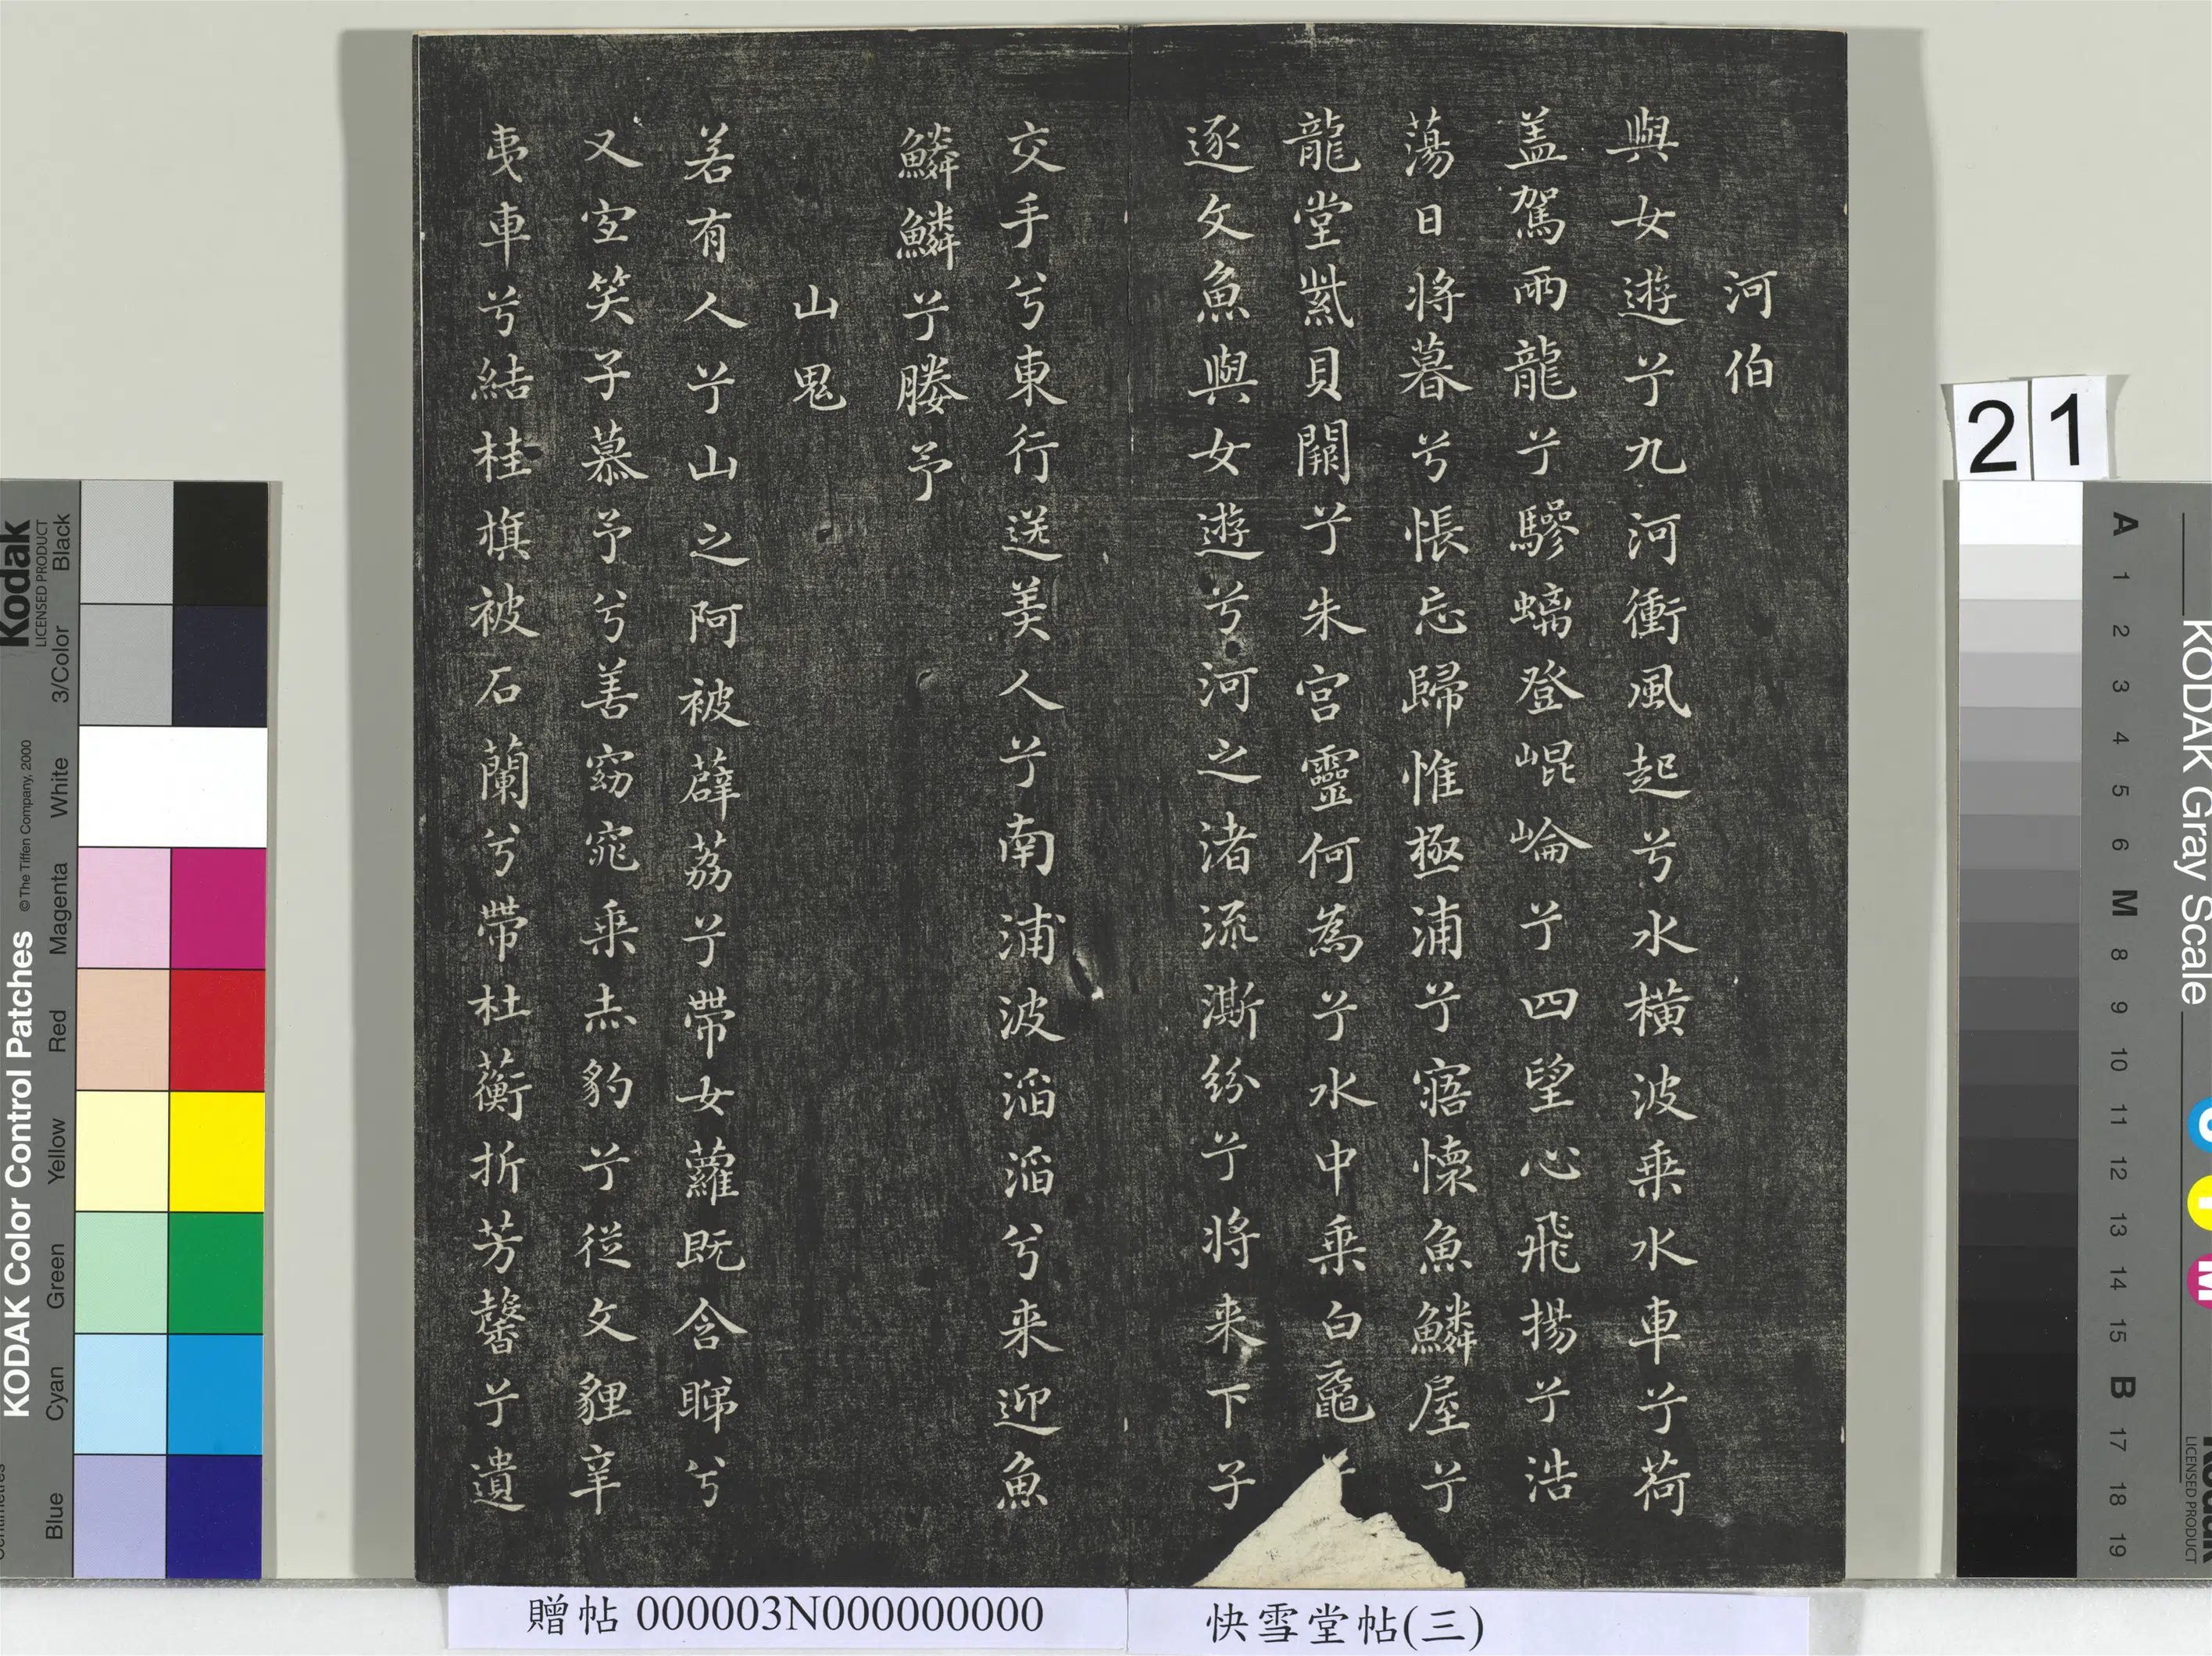 河伯
與女遊兮九河衝風起兮水橫波乗水車兮荷
盖駕兩龍兮驂螭登崐崘兮四望心飛揚兮浩
蕩日将暮兮悵忘歸惟極浦兮寤懷魚鱗屋兮
龍堂紫貝闕兮朱宮靈何為兮水中乗白黿
逐文魚與女遊兮河之渚流澌紛兮将来下子
交手兮東行送美人兮南浦波滔滔兮来迎魚
鱗鱗兮媵予
山鬼
若有人兮山之阿被薜荔兮帶女蘿既含睇兮
又宜笑子慕予兮善窈窕乗赤豹兮從文貍辛
夷車兮結桂旗被石蘭兮帶杜蘅折芳馨兮遺
贈帖 000003N000000000
快雪堂帖(三)
21
Kodak
LICENSED PRODUCT
KODAK Color Control Patches
© The Tiffen Company, 2000
Black
3/Color
White
Magenta
Red
Yellow
Green
Cyan
Blue
KODAK Gray Scale
A 1 2 3 4 5 6 M 8 9 10 11 12 13 14 15 B 17 18 19
LICENSED PRODUCT